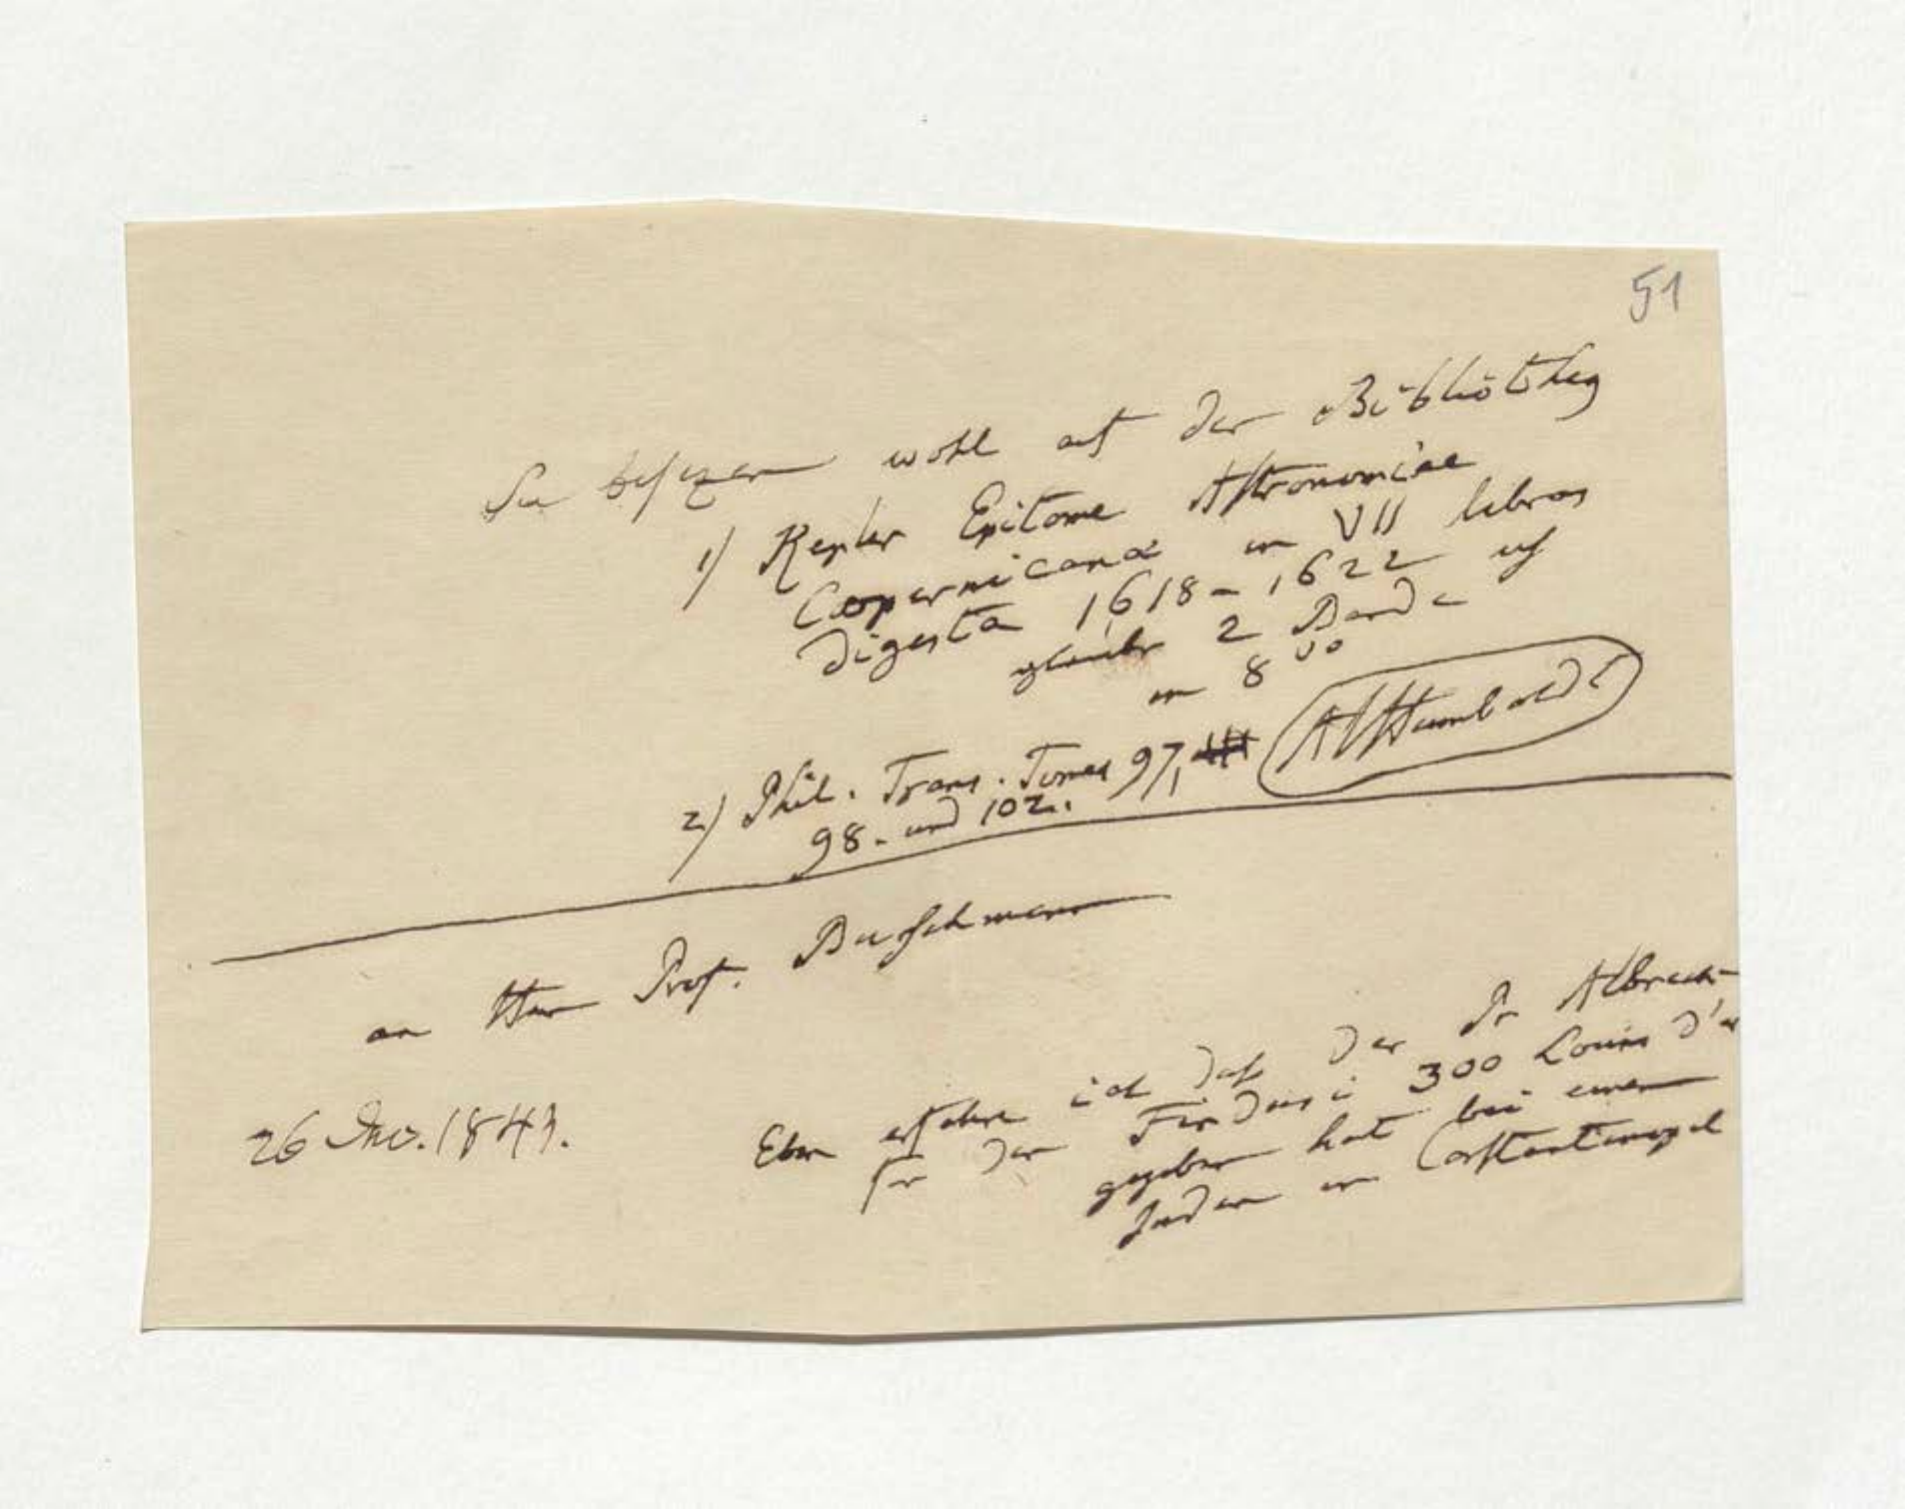 51
Sie besizen wohl auf der Bibliothey
1) Kepler Epitome Astronomiae
Copernicanae in VII libros
digesta 1618-1622 ich
glaube 2 Bande
in 8vo
2) Phil. Trans. Tomes 97,
98. und 102.
AvHumboldt
an Herr Prof. Buschmann
26 Nov. 1843.
Eben erfahre ich daß der Pr Albrecht
für den Firdusi 300 Louis d'or
gegeben hat bei einem
Juden in Constantinopel